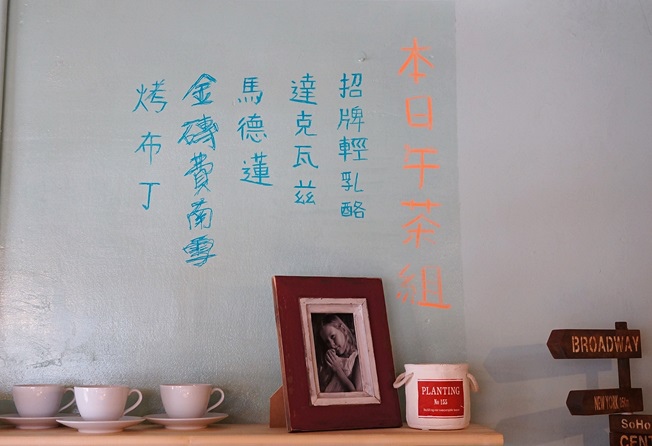 本日午茶組
招牌輕乳酪
達克瓦茲
馬德蓮
金磚費南雪
烤布丁
PLANTING
No 155
BROADWAY
NEW YORK
SOHO
CENT